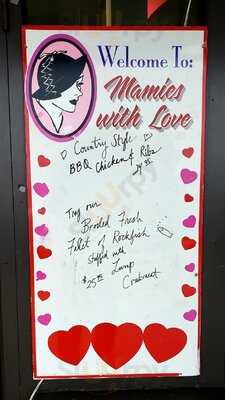 Welcome To:
Mamies
with Love
Country Style
BBQ Chicken & Ribs
Try our
Broiled Fresh
Filet of Rockfish
stuffed with
Lump
$25.95
Crabmeat